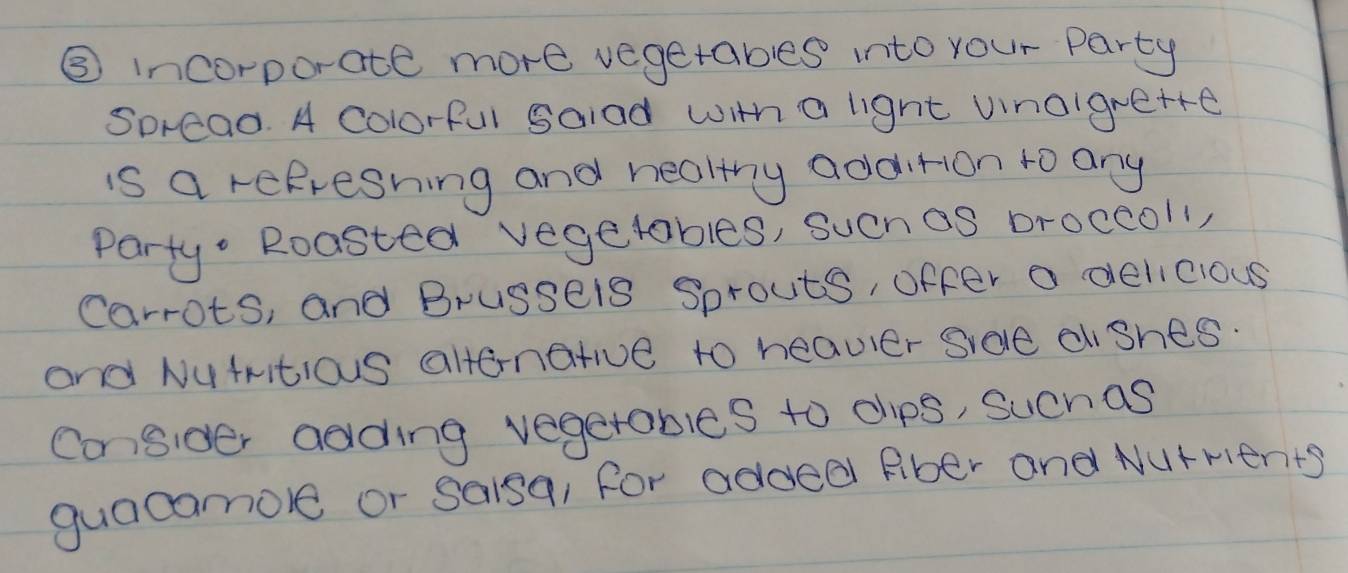 ③ Incorporate more vegetables into your Party
Spread. A Colorful Salad with a light vinaigrette
is a refreshing and healthy addition to any
Party. Roasted vegetables, such as broccoli,
Carrots, and Brussels Sprouts, offer a delicious
and Nutritious alternative to heavier side dishes.
Consider adding vegetables to dips, such as
guacamole or Salsa, for added fiber and Nutrients